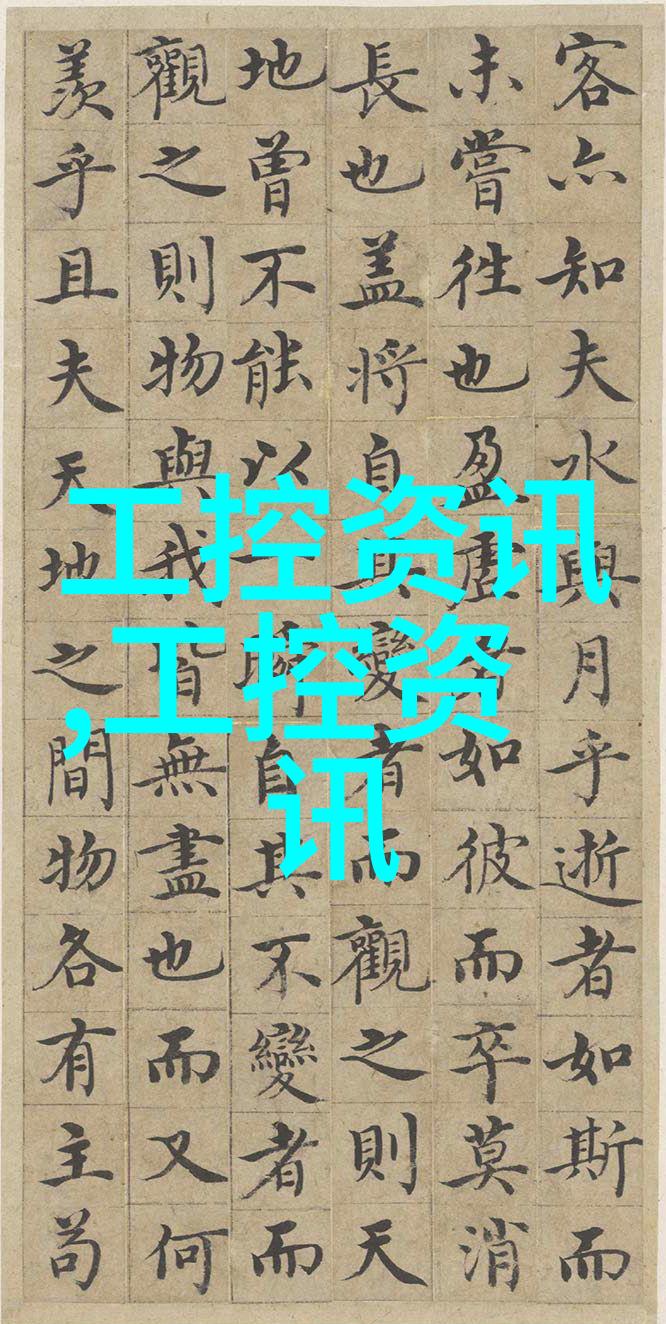 客亦知夫水與月乎逝者如斯而
未嘗徃也盈虛者如彼而卒莫消
長也盖將自其變者而觀之則天
地曾不能以一瞬自其不變者而
觀之則物與我皆無盡也而又何
羨乎且夫天地之間物各有主苟
工控资讯
,工控资
讯